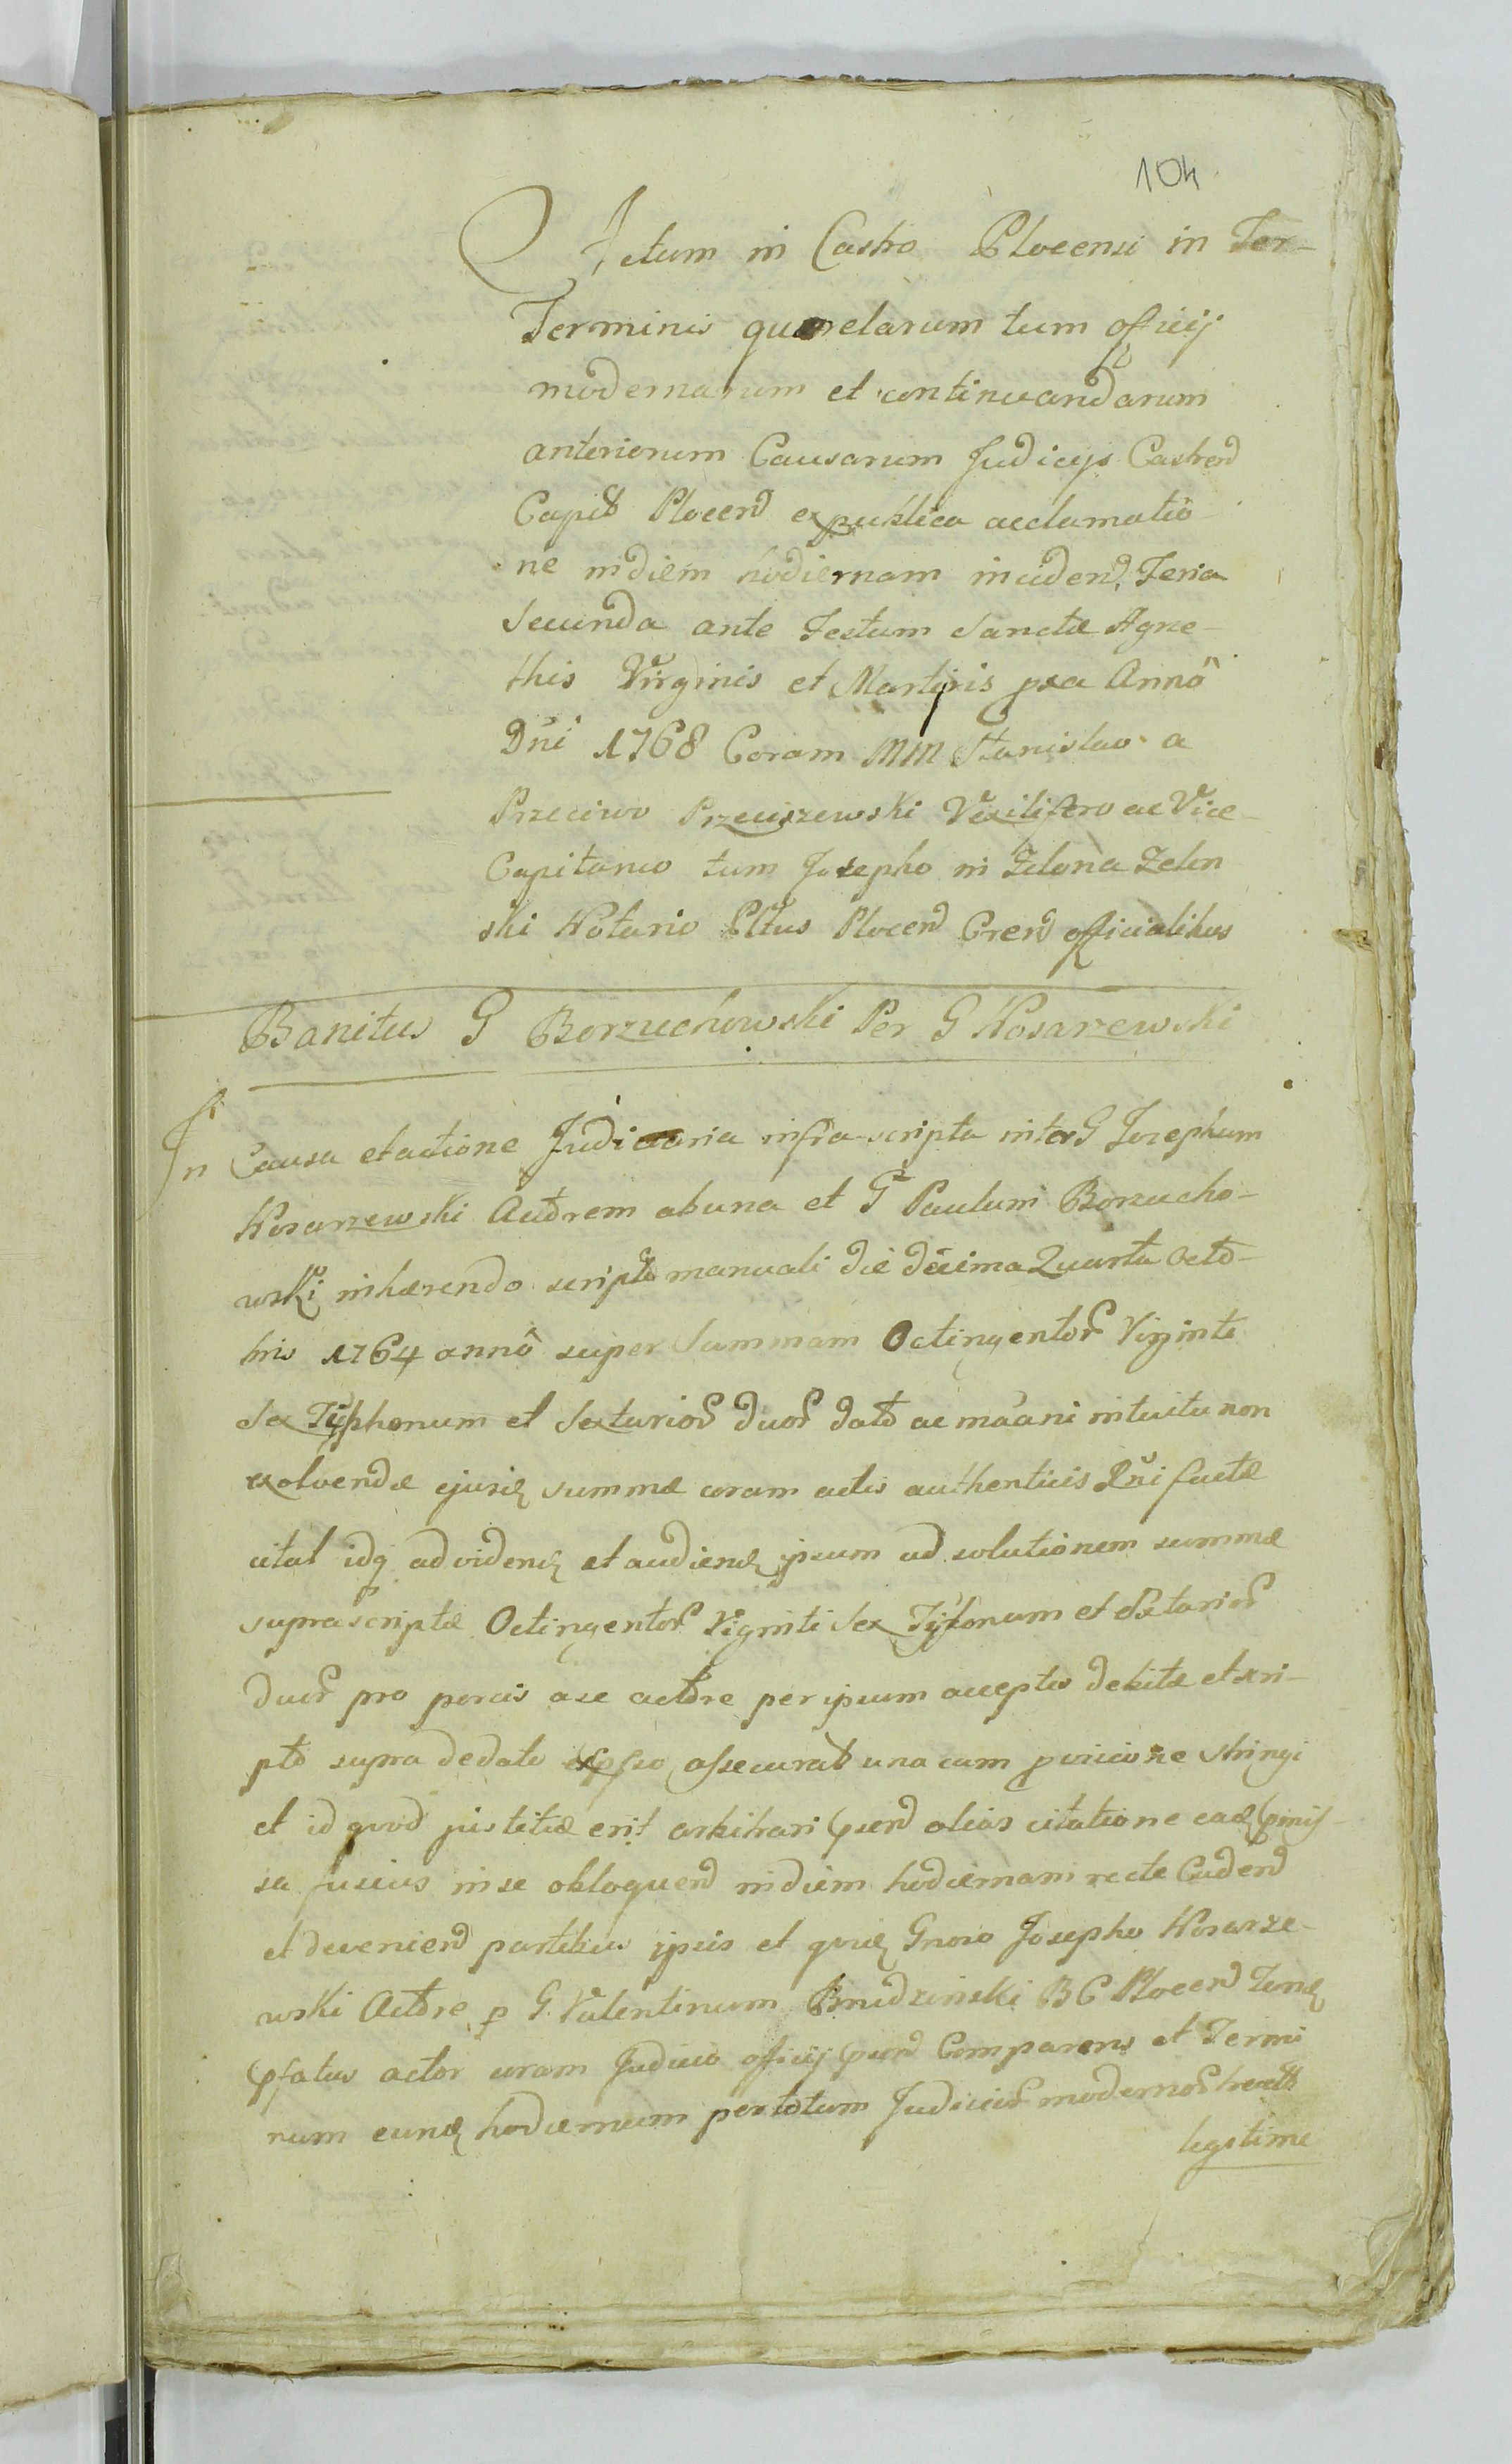 104
Actum in Castro Plocensi in Ter-
Terminis querelarum tum officij
modernarum et continuandarum
anteriorum Causarum Judicijs Castren̄
Capit̄ Plocen̄ ex publica acclamatio
ne in diem hodiernam inciden̄, Feria
Secunda ante Festum Sanctæ Agne-
this Virginis et Martyris pxa Annô
Dn̄i 1768 Coram MM Stanislao a
Przeciwo Przeciszewski Vexilifero ac Vice-
Capitaneo tum Josepho in Zelona Zelen
ski Notario Pltus Plocen̄ Cren̄ officialibus
Banitus G Borzuchowski Per G Kosarzewski
In Causa et actione Judiciaria infra scripta inter G Josephum
Kosarzewski Act̄orem ab una et G Paulum Borzucho-
wski inhærendo scripto manuali die decima Quarta Octo-
bris 1764 annô super Summam Octingentor̄ Viginti
Sex Tÿphonum et Sextarior̄ duor̄ dato ac mani intuitu non
exolvendæ ejusd̄ summæ coram actis authenticis Rn̄i factæ
citat idq̄ ad videnđ et audienđ ipsum ad solutionem summæ
suprascriptæ Octingentor̄ Viginti Sex Tÿfonum et Sextarior̄
duor̄ pro porcis a se actore per ipsum acceptis debitæ et scri-
pto supra de dato expsso assecurat̄ una cum stringi
et id quod justitiæ erit arbitrari psen̄ alias citatione ead̄ pmis-
sa fusius in se obloquen̄ in diem hodiernam recte Caden̄
et devenien̄ partibus ipsis et quid̄ Gnoso Josepho Kosarze-
wski Actore p G. Valentinum Brudzinski B C Plocen̄
pfatus actor coram Judicio officij psen̄ Comparens et Termi
num eund̄ hodiernum per totum Judicior̄ modernor̄
legitime